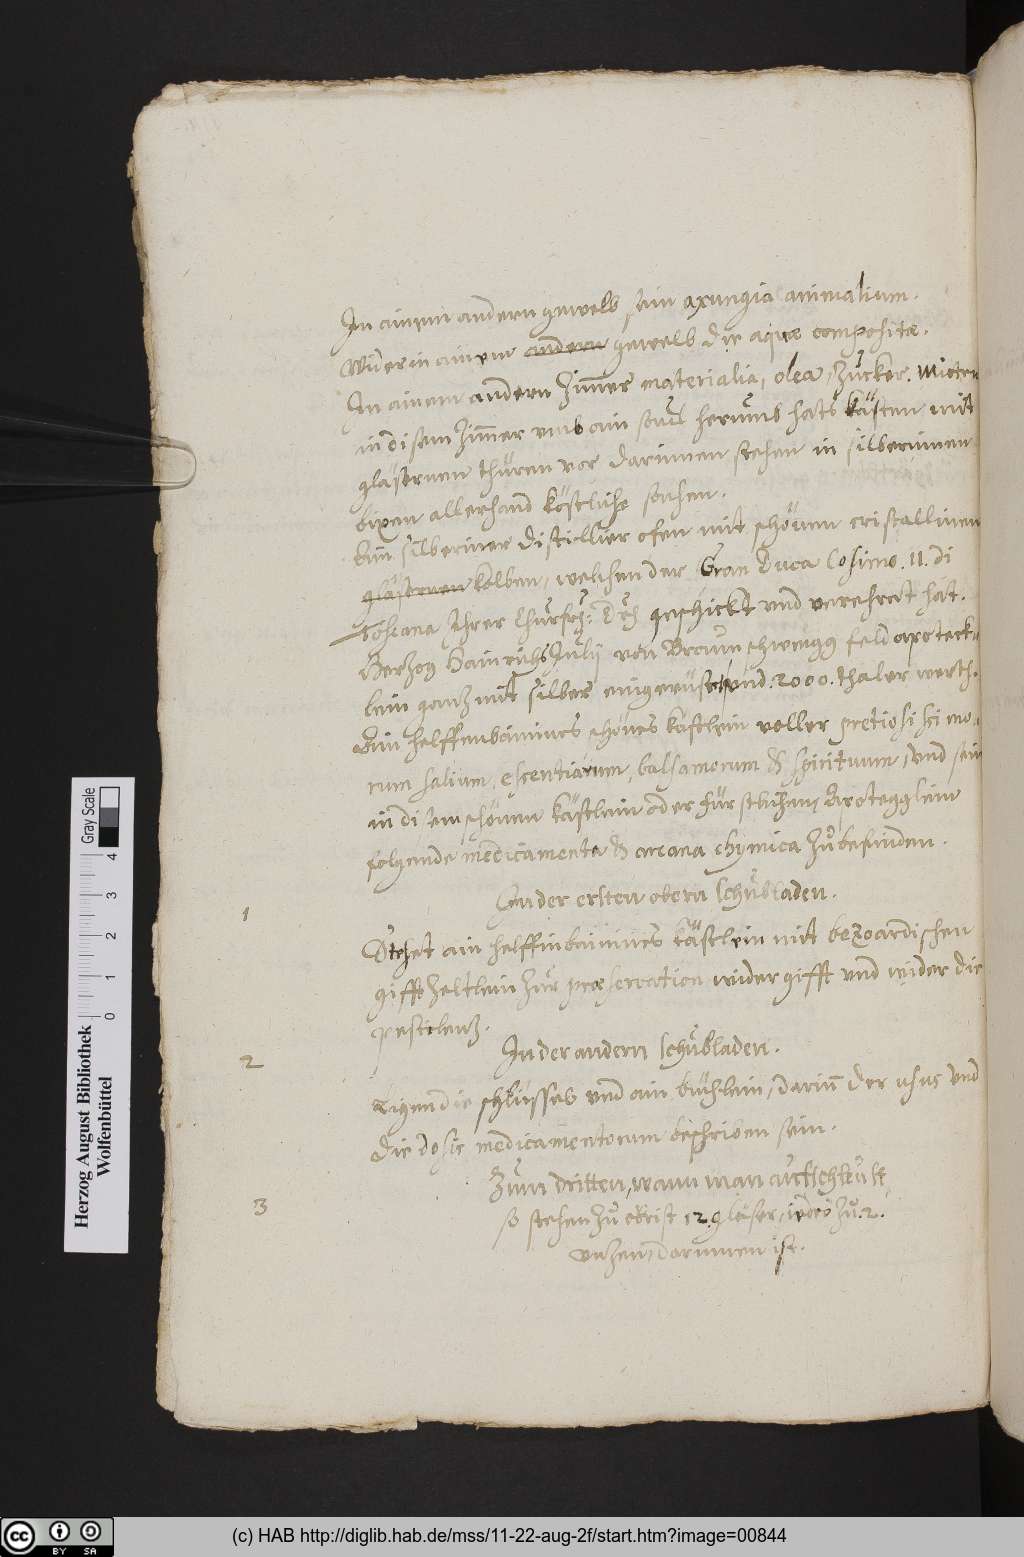 In ainem andern gewelb sein axungia animalium.
Wider in ainem andern gewelb die aquæ compositæ.
In ainem andern Zimmer materialia, olea, Zucker. Mitten
in disem Zimmer umb ain herumb hats kästen mit
gläsernen thüren vor darinnen stehen in silberninen
bixen allerhand köstliche sachen.
Ein silberiner distillier ofen mit schönen cristallinen
gläsernen kolben, welchen der Gran Duca Cosimo. II. di
Toscana Ihrer Churfr: D geschickt und verehret hat.
Herzog Hainrichs Julij von Braunschweigg feld apoteck-
lein ganz mit silber eingerüst, und. 2000. thaler werth.
Ain helffenbainines schönes kästlein voller pretiosissimo-
rum salium, escentiarum, balsamorum & spirituum, und sein
in disem schönen kästlein oder fürstlichen Apotegglein
folgende medicamenta & arcana chymica zubefinden.
In der ersten obern schubladen.
1
Stehet ain helffinbainines kästlein mit bezoardischen
gifft zeltlein zur præservation wider gifft und wider die
pestilenz.
In der andern schubladen.
2
Ligen die schlüssel und ain büchlein, darinn der usus und
die dosis medicamentorum beschriben sein.
3
Zum dritten, wann man
so stehen zu obrist 12. gläser, zu. 2.
unzen, darinnen ist.
Herzog August Bibliothek
Wolfenbüttel
0 1 2 3 4
Gray Scale
cc BY SA
(c) HAB http://diglib.hab.de/mss/11-22-aug-2f/start.htm?image=00844